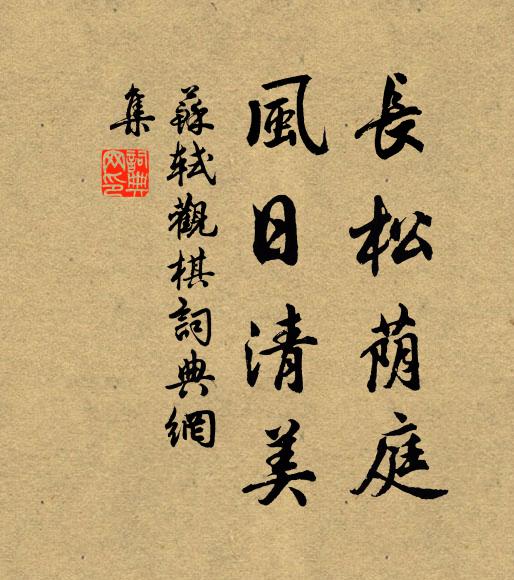 長松荫庭
風日清美
蘇軾觀棋詞典網
集
詞典
网印